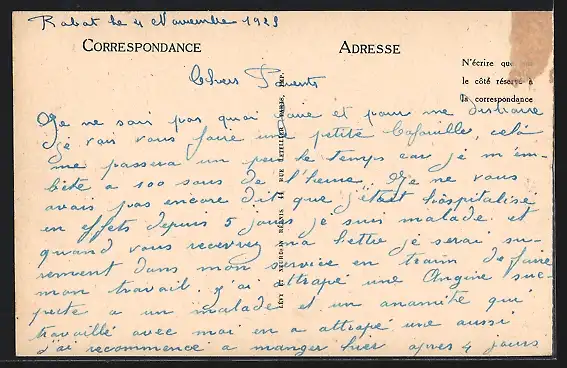 Rabat le 4 Novembre 1923
CORRESPONDANCE
ADRESSE
N'écrire que
le côté réservé à
la correspondance
Chers Parents
Je ne sais pas quoi faire et pour me distraire
je vais vous faire une petite Cafouille, celà
me passera un peu le temps car je m'em-
bête a 100 sous de l'heure. Je ne vous
avais pas encore dit que j'étais hospitalisé
en effets depuis 5 jours je suis malade. et
quand vous recevrez ma lettre je serai su-
rement dans mon service en train de faire
mon travail. j'ai attrapé une Angine sus-
pecte a un malade et un anamite qui
travaillé avec moi en a attrapé une aussi
j'ai recommencé a manger hier après 4 jours
LÉVY ET NEURDEIN RÉUNIS 44 RUE LETELLIER, PARIS, IMP.